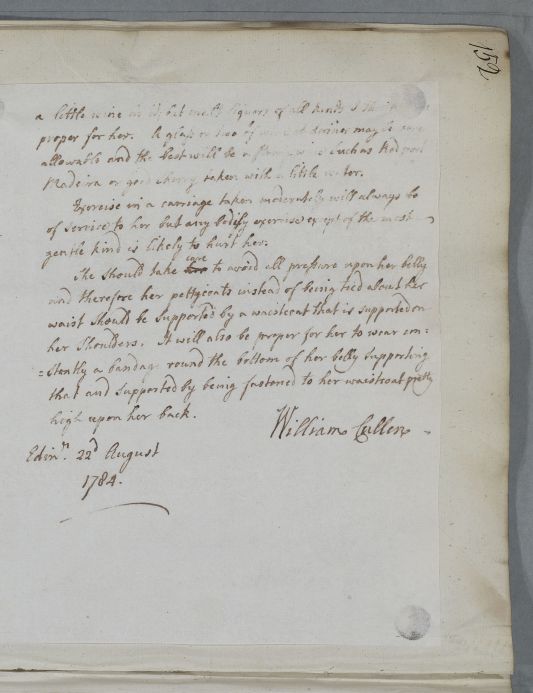 152
a little wine in it, but malt liquors of all kinds I think
proper for her. A glass or two of wine at dinner may be
allowable and the best will be a strong wine such as Red port
Madeira or good sherry taken with a little water.
Exercise in a carriage taken moderately will always be
of service to her but any bodily exercise except of the most
gentle kind is likely to hurt her.
She should take care to avoid all pressure upon her belly
and therefore her pettycoats instead of being tied about her
waist should be supported by a waistcoat that is supported on
her shoulders. It will also be proper for her to wear con=
=stantly a bandage round the bottom of her belly supporting
that and supported by being fastened to her waistcoat pretty
high upon her back.
William Cullen
Edinn. 22d August
1784.